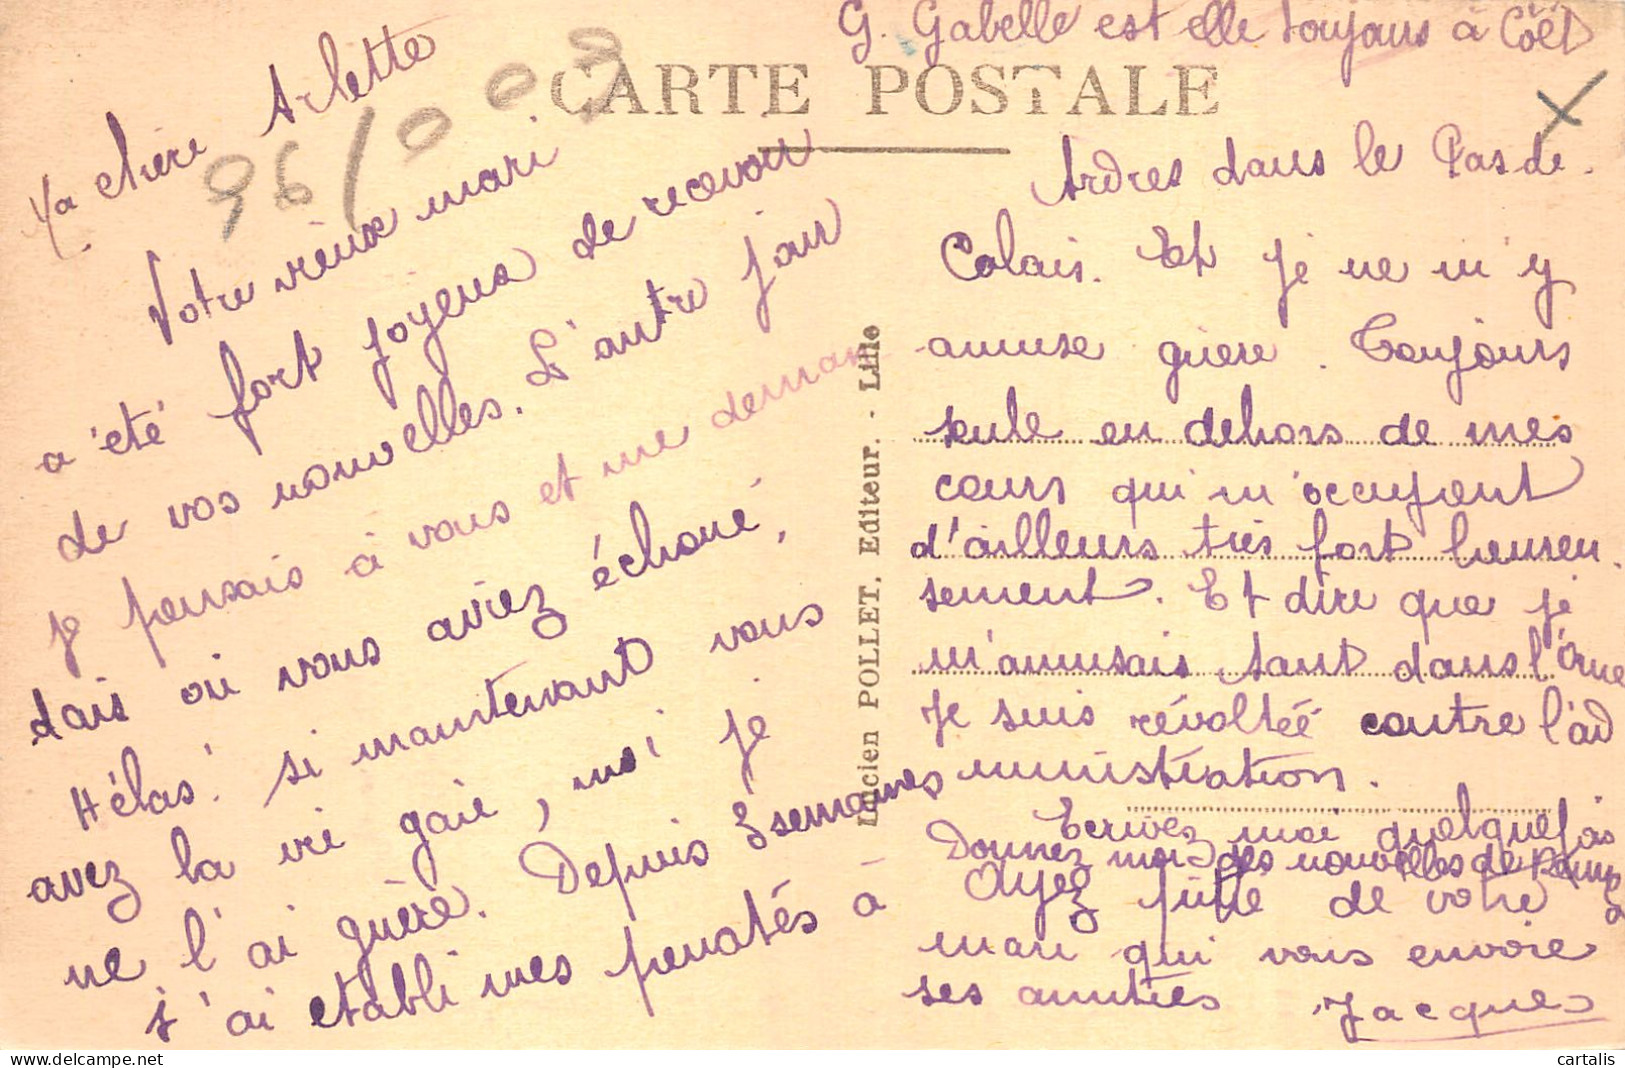 G. Gabelle est elle toujours à Coët
CARTE POSTALE
96/003
Ma chère Arlette
Votre vieux mari
a été fort joyeux de recevoir
de vos nouvelles. L'autre jour
je pensais à vous et me deman
dais où vous aviez échoué,
Hélas! si maintenant vous
avez la vie gaie, moi je
ne l'ai guère. Depuis 3 semaines
j'ai etabli mes penatés à
Lucien POLLET, Editeur. - Lille
Ardres dans le Pas de.
Calais. Et je ne m'y
amuse guère. Toujours
seule en dehors de mes
cours qui m'occupent
d'ailleurs très fort heureu.
sement. Et dire que je
m'amusais tant dans l'Orne
Je suis révoltée contre l'ad
ministration.
Ecrivez moi quelquefois
Donnez moi des nouvelles de
Ayez pitié de votre
mari qui vous envoie
ses amitiés Jacques
cartalis